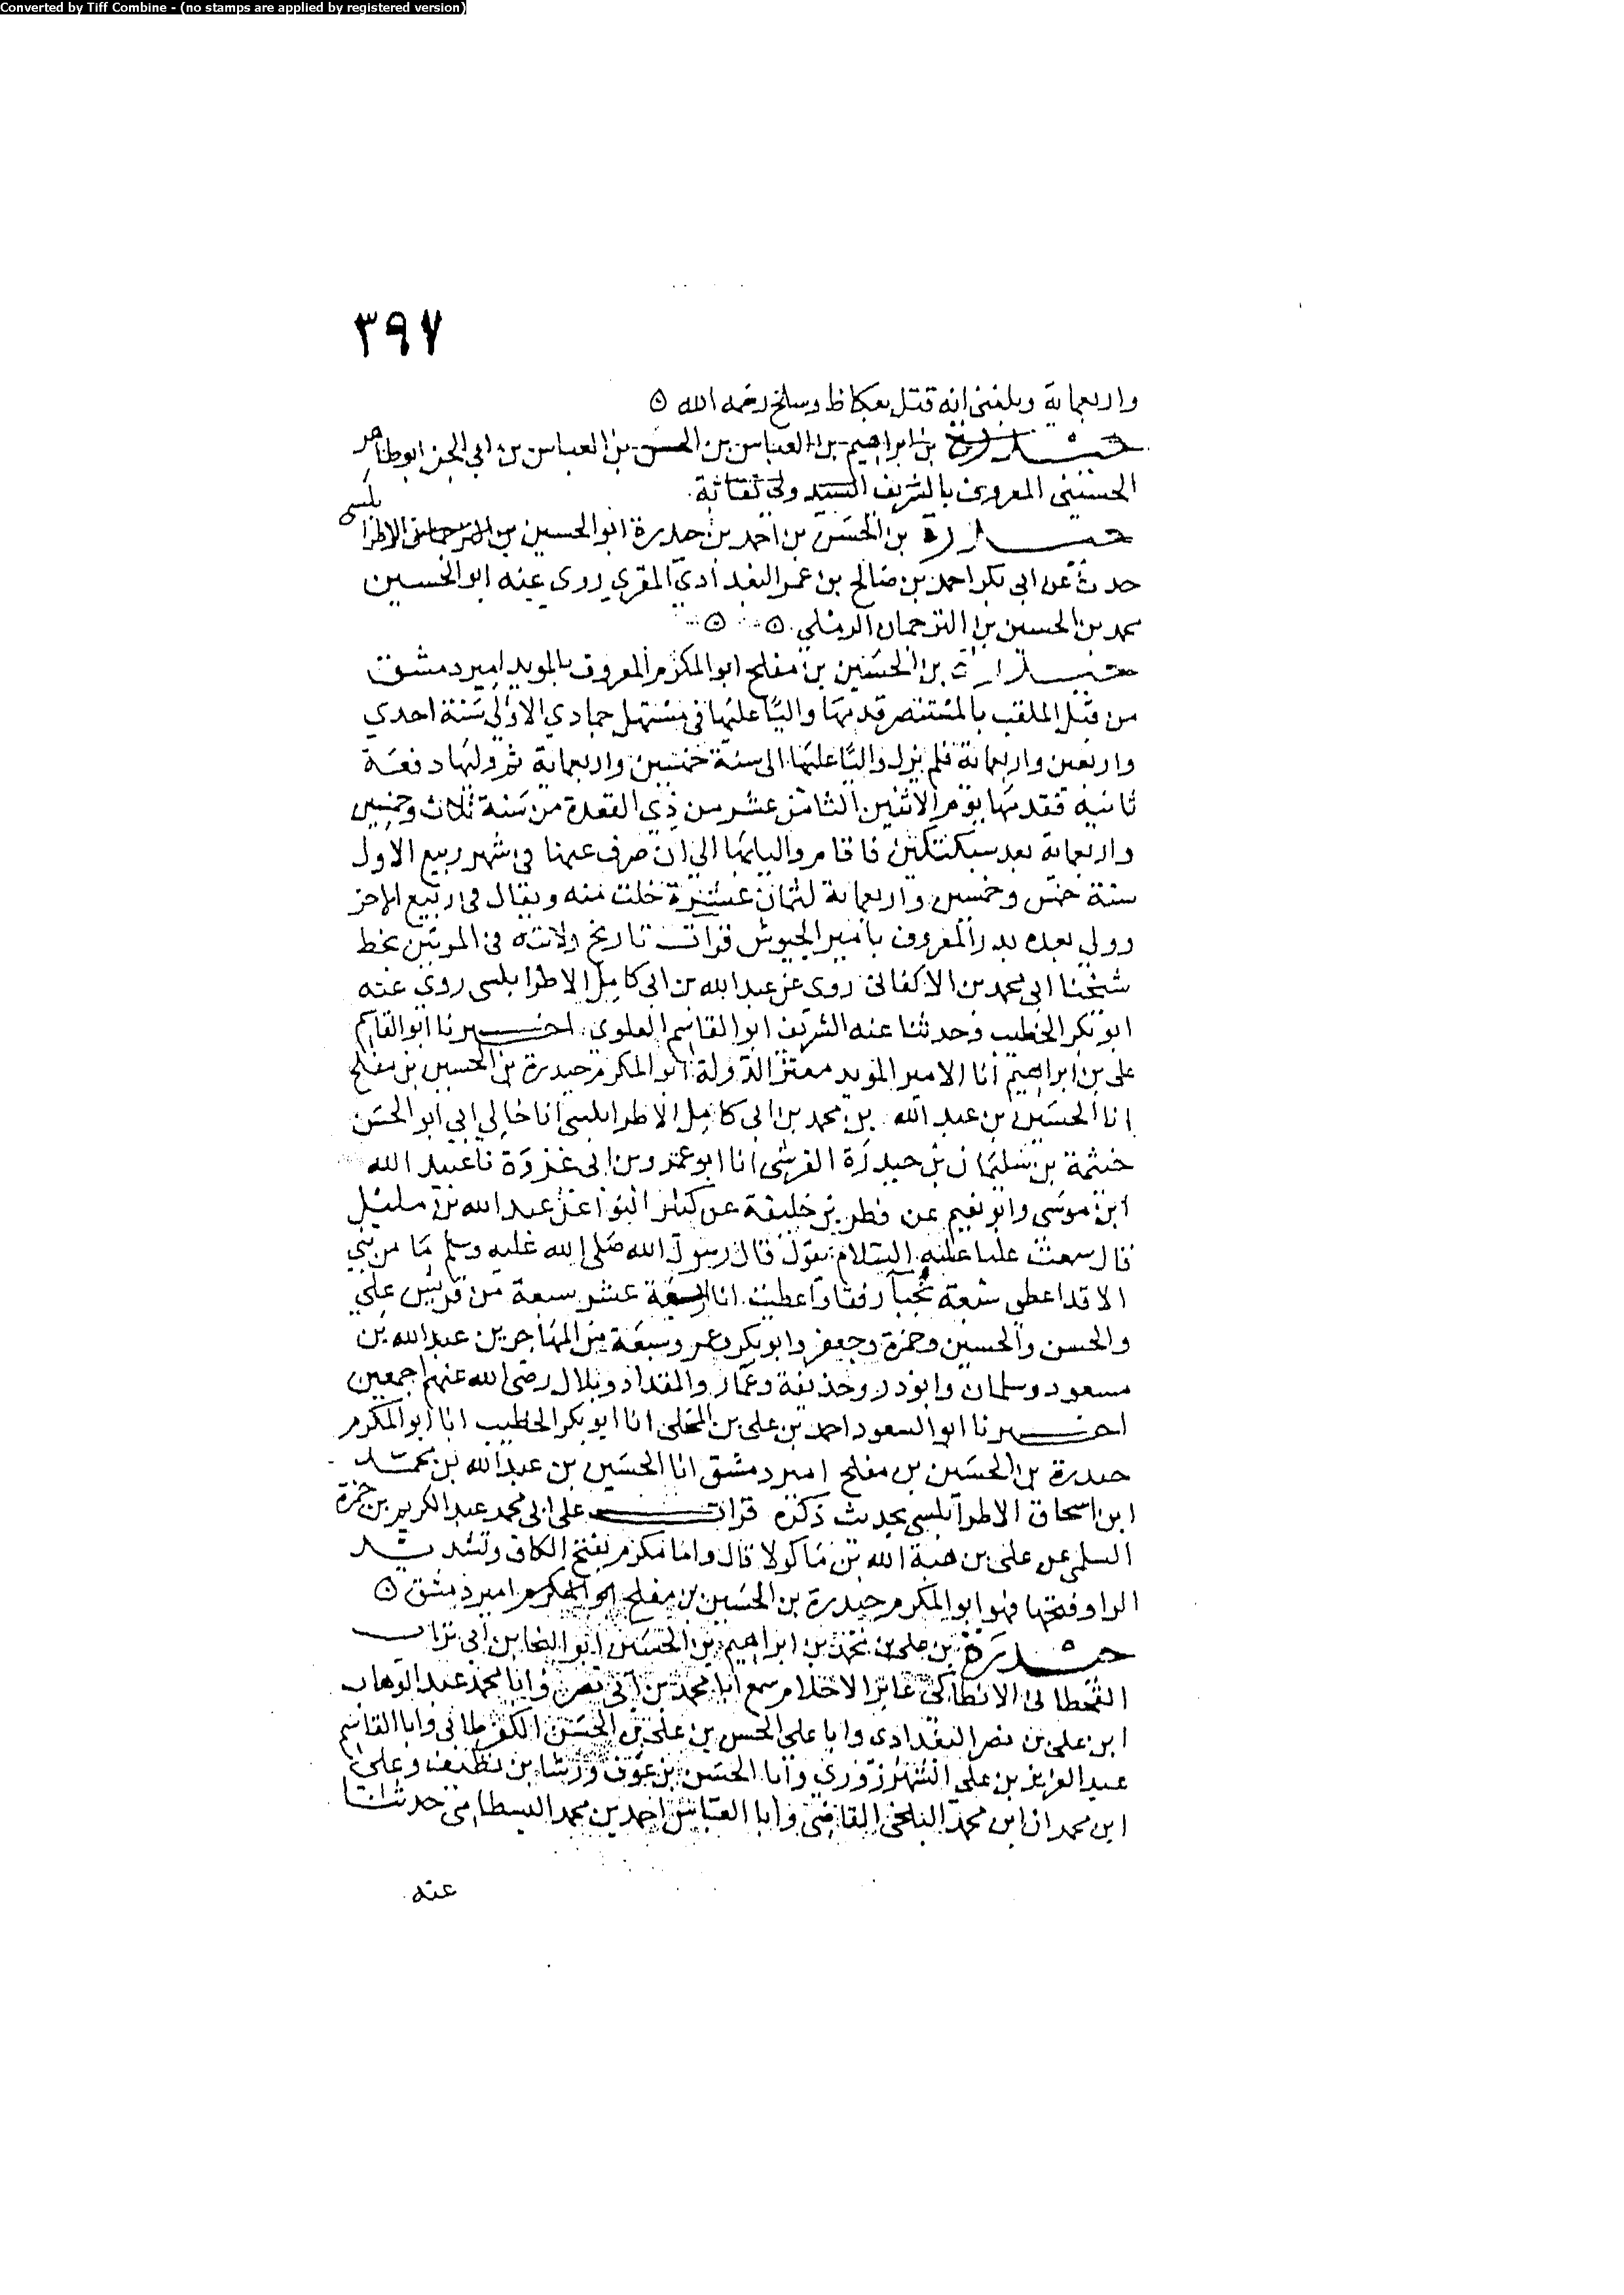 Converted by Tiff Combine - (no stamps are applied by registered version)
٣٩٧
واربعماية وبلغني انه قتل بعكا وسلخ رحمه الله ٥
حيدرة بن ابراهيم بن العباس بن الحسن بن العباس بن ابي الجن ابو طاهر
الحسيني المعروف بالشريف السيد ولي نقابة
حيدرة بن الحسن بن احمد بن حيدرة ابو الحسين بن الاطرابلسي
حدث عن ابي بكر احمد بن صالح بن عمر البغدادي المقري روى عنه ابو الحسين
محمد بن الحسين بن الترجمان الرملي ٥ ٥
حيدرة بن الحسين بن مفلح ابو المكرم المعروف بالمويد امير دمشق
من قبل الملقب بالمستنصر قدمها واليا عليها في مستهل جمادي الاولى سنة احدي
واربعين واربعماية فلم يزل واليا عليها الى سنة خمسين واربعماية ثم وليها دفعة
ثانية فقدمها يوم الاثنين الثامن عشر من ذي القعدة من سنة ثلاث وخمسين
واربعماية بعد سبكتكين فاقام واليا بها الي ان صرف عنها في شهر ربيع الاول
سنة خمس وخمسين واربعماية لثمان عشرة خلت منه ويقال في ربيع الاخر
وولي بعده بدر المعروف بامير الجيوش قرات تاريخ ولايته في المرتين بخط
شيخنا ابي محمد بن الاكفاني روى عن عبد الله بن ابي كامل الاطرابلسي روى عنه
ابو بكر الخطيب وحدثنا عنه الشريف ابو القاسم العلوي اخبرنا ابو القاسم
علي بن ابراهيم انا الامير المويد معتز الدولة ابو المكرم حيدرة بن الحسين بن مفلح
انا الحسين بن عبد الله بن محمد بن ابي كامل الاطرابلسي انا خالي ابي ابو الحسن
خيثمة بن سليمان بن حيدرة القرشي انا ابو عمرو بن ابي غرزة نا عبيد الله
ابن موسى وابو نعيم عن فطر بن خليفة عن كثير النوا عن عبد الله بن مليل
قال سمعت عليا عليه السلام يقول قال رسول الله صلى الله عليه وسلم ما من نبي
الا قد اعطي سبعة نجبا رفقا واعطيت انا اربعة عشر سبعة من قريش علي
والحسن والحسين وحمزة وجعفر وابو بكر وعمر وسبعة من المهاجرين عبد الله بن
مسعود وسلمان وابو ذر وحذيفة وعمار والمقداد وبلال رضي الله عنهم اجمعين
اخبرنا ابو السعود احمد بن علي بن المجلي انا ابو بكر الخطيب انا ابو المكرم
حيدرة بن الحسين بن مفلح امير دمشق انا الحسين بن عبد الله بن محمد
ابن اسحاق الاطرابلسي بحديث ذكره قرات على ابي محمد عبد الكريم بن حمزة
السلمي عن علي بن هبة الله بن ماكولا قال واما مكرم بفتح الكاف وتشديد
الرا وفتحها فهو ابو المكرم حيدرة بن الحسين بن مفلح ابو المكرم امير دمشق ٥
حيدرة بن علي بن محمد بن ابراهيم بن الحسين ابو المنجا بن ابي تراب
القحطاني الانطاكي عابر الاحلام سمع ابا محمد بن ابي نصر وابا محمد عبد الوهاب
ابن علي بن نصر البغدادي وابا علي الحسن بن علي بن الحسن الكفرطابي وابا القاسم
عبد العزيز بن علي الشهرزوري وابا الحسن بن عوف ورشا بن نظيف وعلي
ابن محمد ان ابن محمد البلخي القاضي وابا العباس احمد بن محمد البسطامي حدثنا
عنه